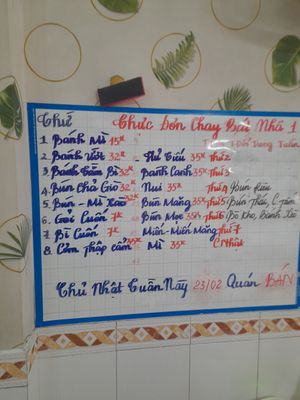 Thứ Thực Đơn Chay Bát Nhã 1
1 Bánh Mì 15K
2 Bánh Ướt 32K - Hủ Tiếu 35K Thứ 2
3 Bánh Tằm Bì 32K Bánh Canh 35K Thứ 3
4 Bún Chả Giò 32K Nui 35K Thứ 4 Bún
5 Bún - Mì Xào 32K Bún Măng 35K Thứ 5 Bún Thái,
6. Gỏi Cuốn 7K Bún Mọc 35K Thứ 6 Bò Kho, Bánh Xèo
7 Bì Cuốn 7K Miến - Miến Măng Thứ 7
8. Cơm Thập cẩm Mì 35K C Nhật
Chủ Nhật Tuần Này 23/02 Quán BÁN